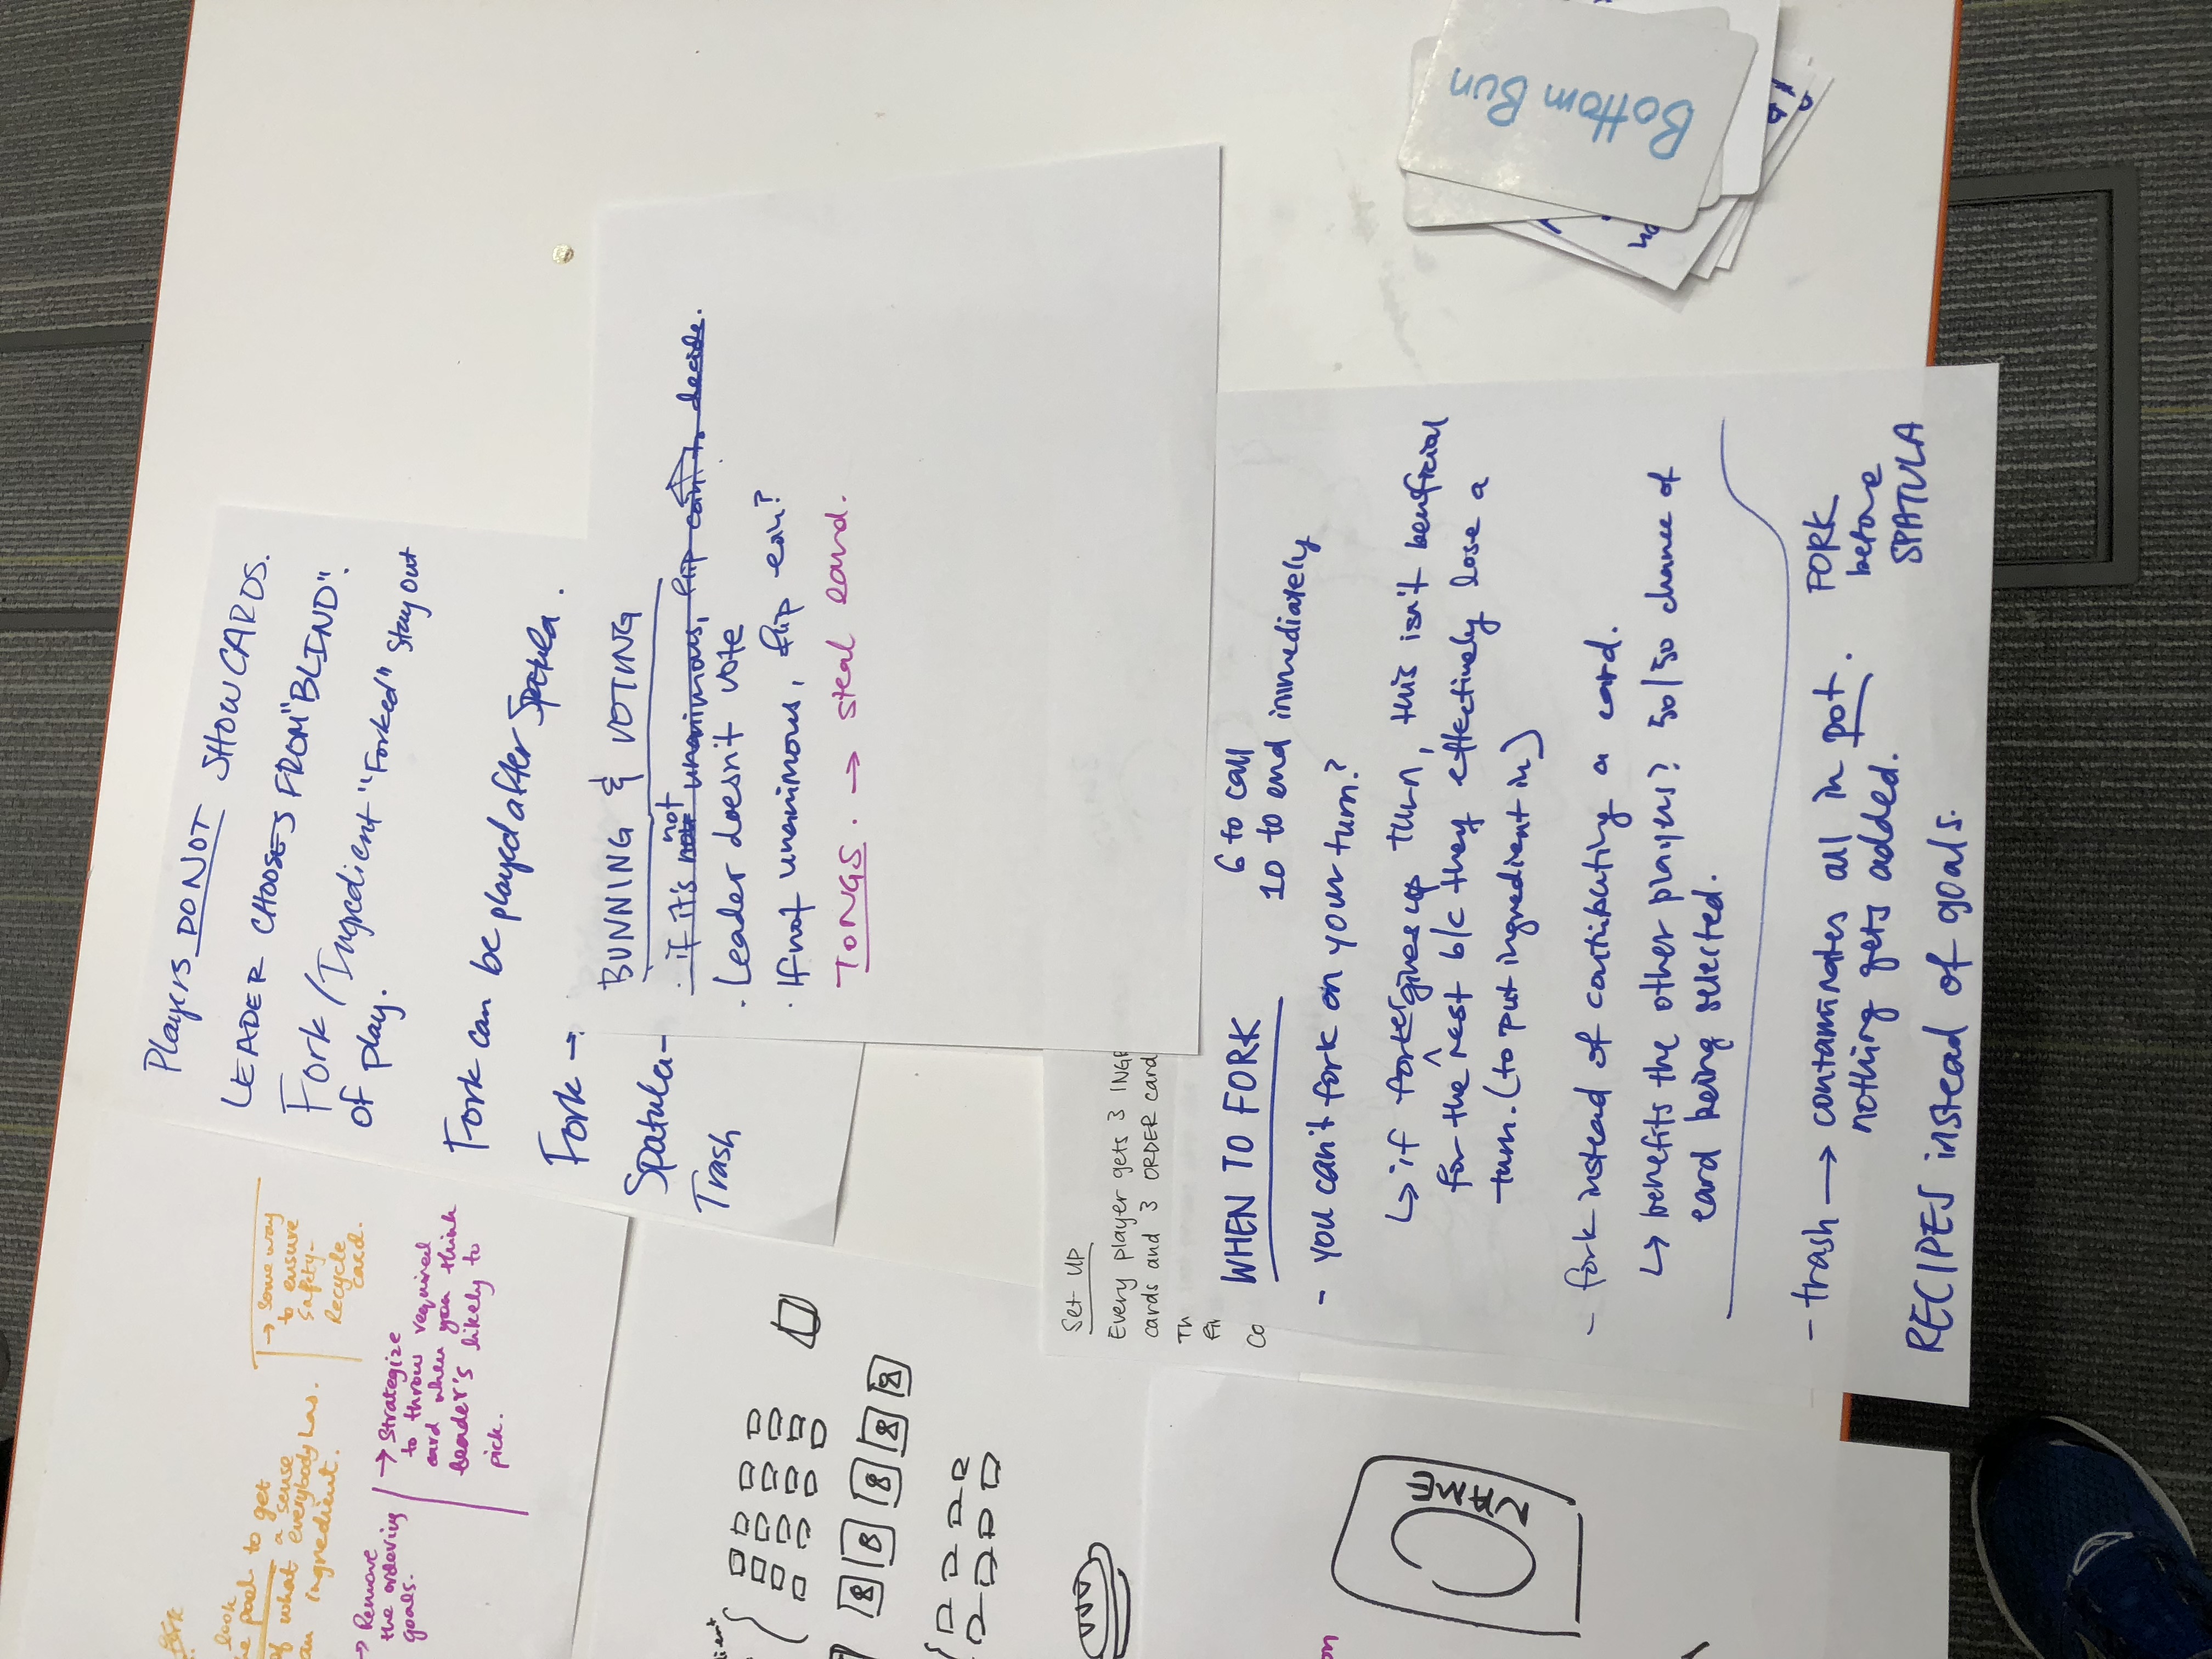 look
pool to get
a sense
of what everybody has.
an ingredient.
→ Some way
to ensure
safety-
Recycle
card.
→ Remove
the ordering
goals.
→ Strategize
to throw required
card when you think
leader's likely to
pick.
Players DO NOT SHOW CARDS.
LEADER CHOOSES FROM "BLIND".
Fork / Ingredient "Forked" stay out
of play.
Fork can be played after Spatula.
Fork →
Spatula-
Trash
BUNNING & VOTING
· if it's not unanimous, flip coin to decide.
· Leader doesn't vote
· If not unanimous, flip coin?
TONGS. → steal card.
Set UP
Every player gets 3
cards and 3 ORDER card
Th
Co
WHEN TO FORK
6 to call
10 to end immediately
- you can't fork on your turn?
↳ if forker gives up turn, this isn't beneficial
for the rest b/c they effectively lose a
turn. (to put ingredient in)
- fork instead of contributing a card.
↳ benefits the other players? 50/50 chance of
card being selected.
- trash → contaminates all in pot.
nothing gets added.
FORK
before
SPATULA
RECIPES instead of goals.
NAME
Bottom Bun